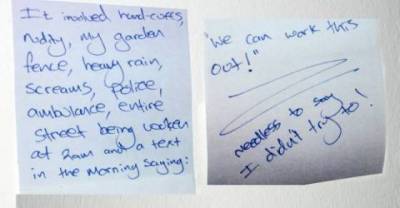 It involved hand-cuffs,
nudity, my garden
fence, heavy rain,
screams, police,
ambulance, entire
street being woken
at 2am and a text
in the morning saying:
"We can work this
out!"
needless to say
I didn't try to!